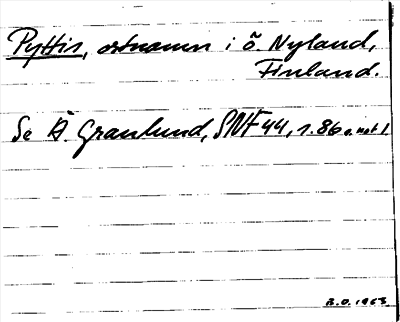 Pyttis, ortnamn i ö. Nyland,
Finland.
Se Å. Granlund, SNF 44, s. 86 o. not 1.
B.O. 1963.